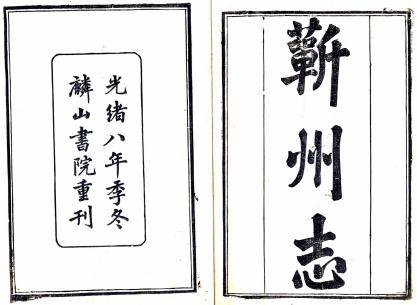 蘄州志
光緒八年季冬
麟山書院重刊